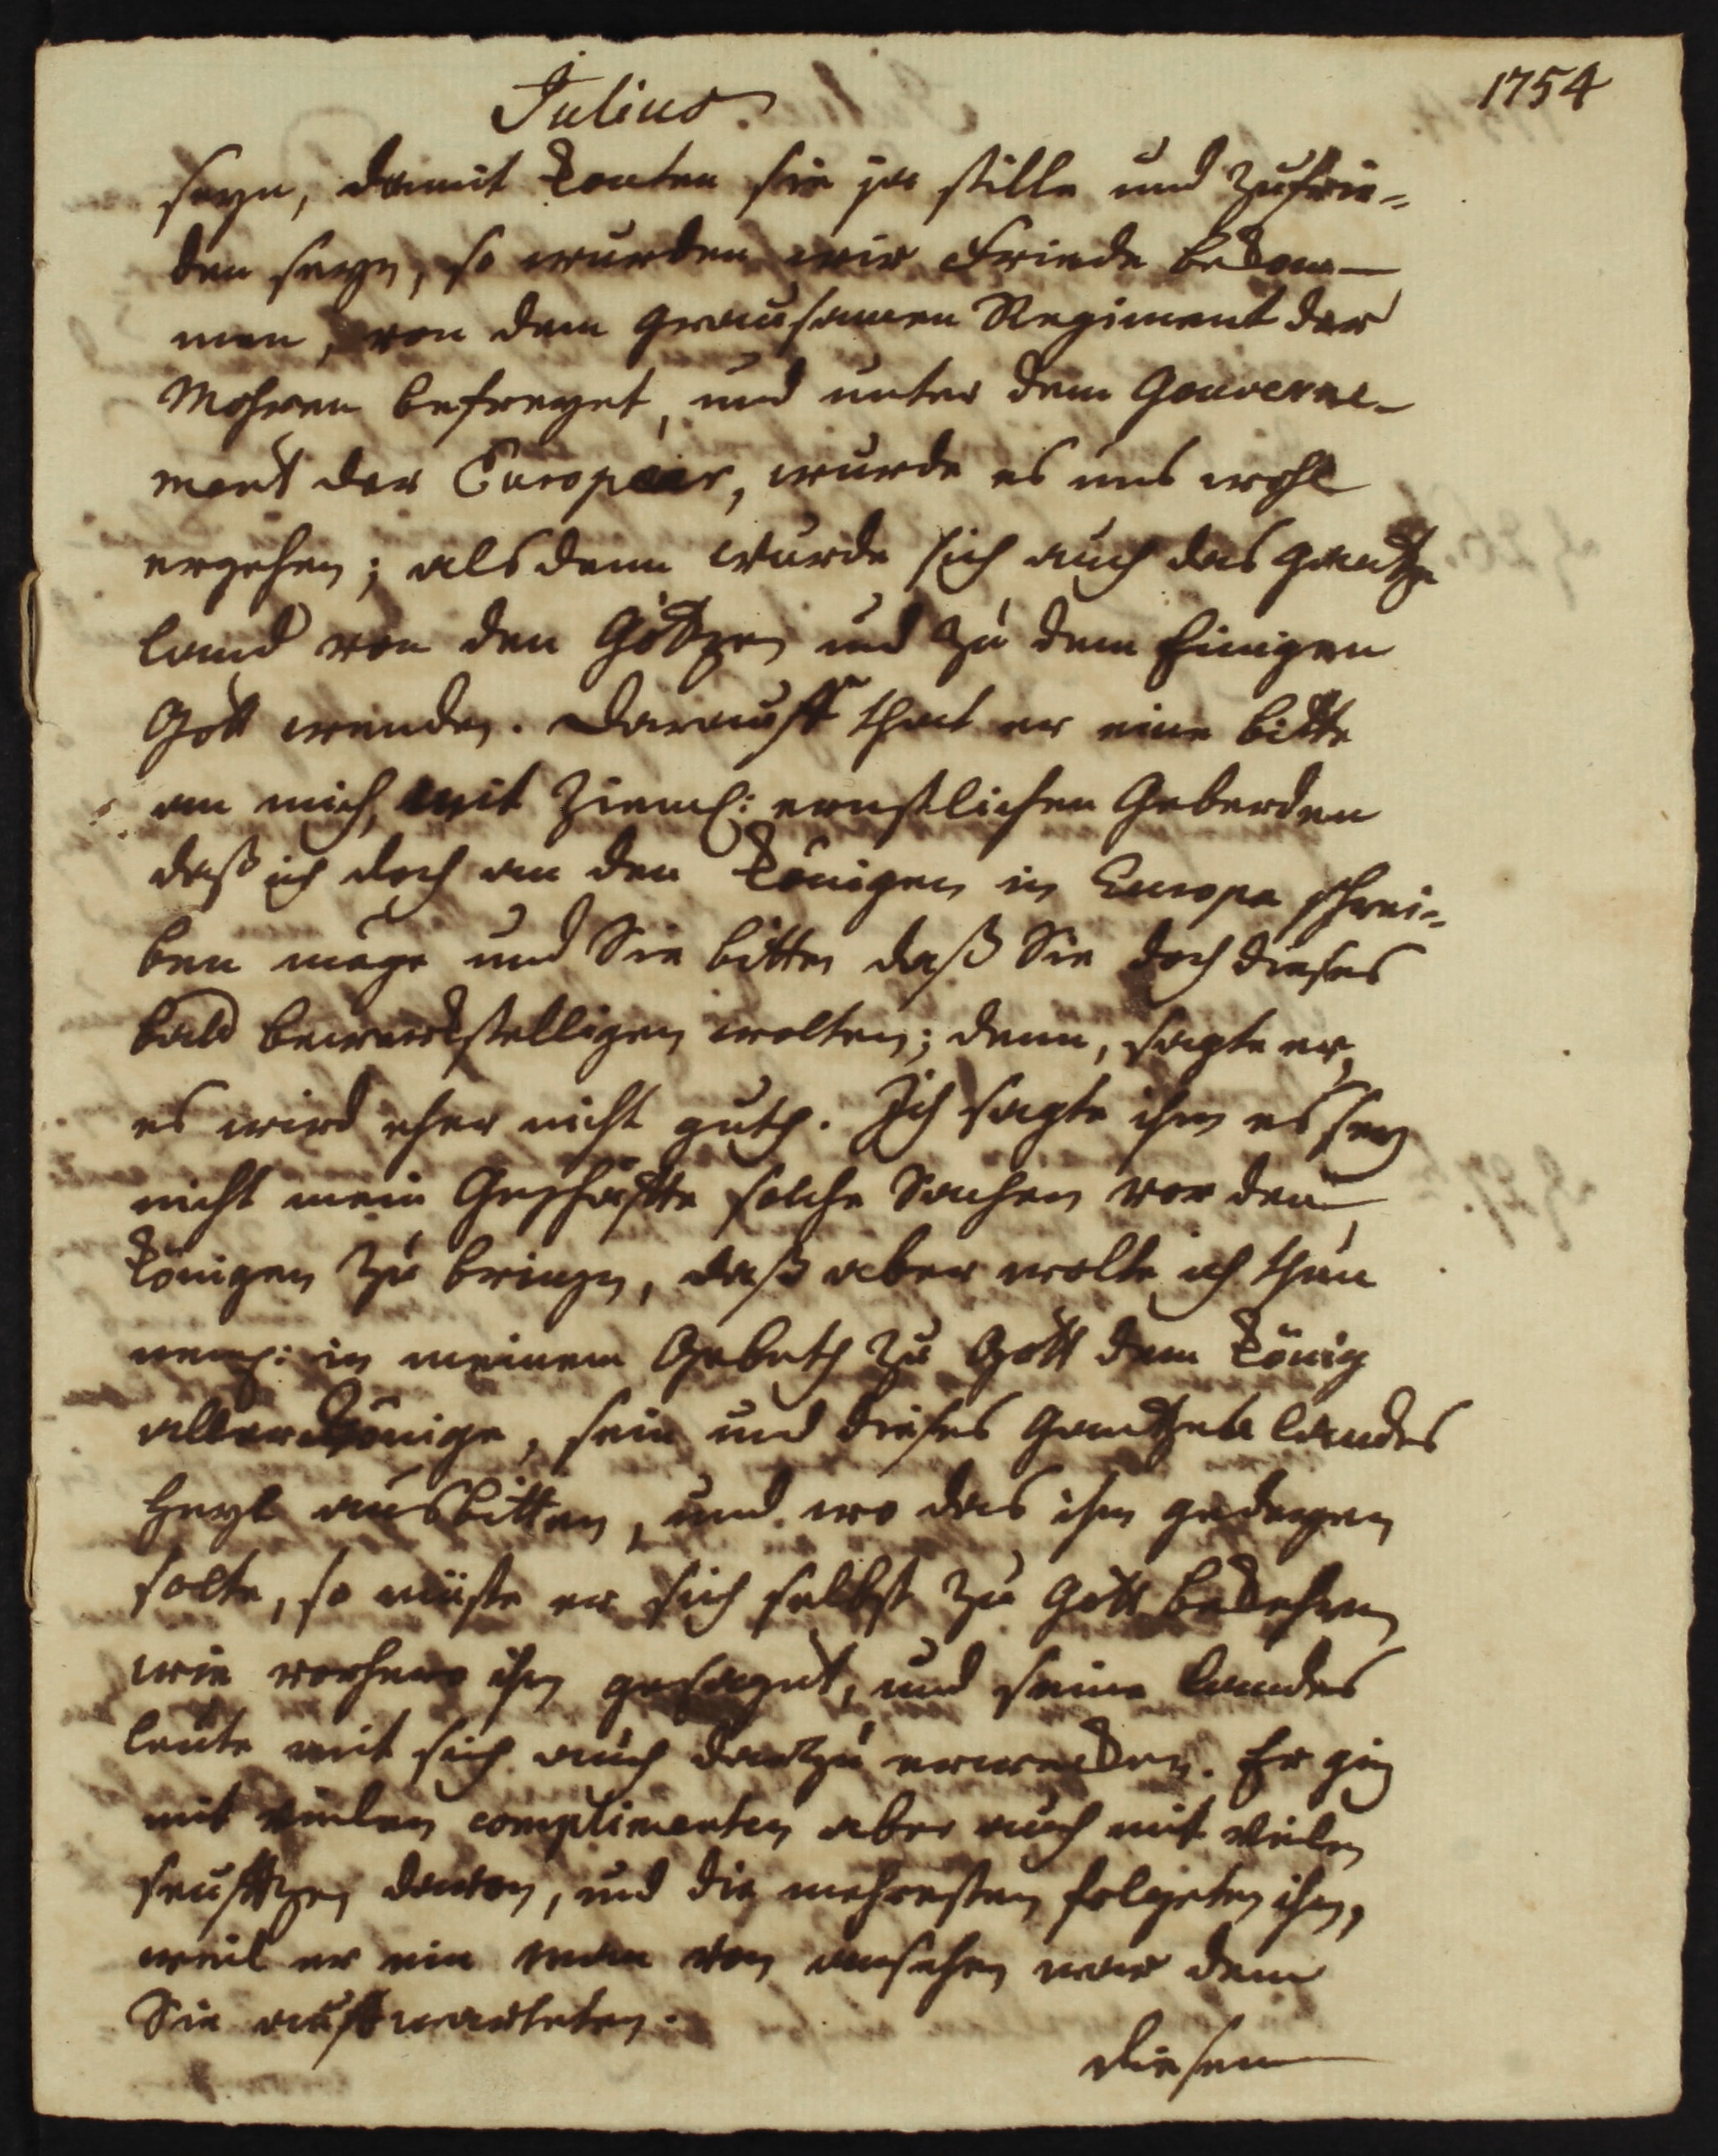 Julius.
1754
seyn, damit konten sie ja stille und zufrie-
den seyn, so wurden wir Friede bekom-
men, von dem grausamen Regiment der
Mohren befreyet, und unter dem Gouverne-
ment der Europäer, wurde es uns wohl
ergehen; als denn wurde sich auch das gantze
land von den Götzen und zu dem Einigen
Gott wenden. Darauff that er eine bitte
an mich, mit zieml: ernstlichen Geberden
daß ich doch an den Königen in Europa schrei-
ben möge und Sie bitten daß Sie doch dieses
bald bewerkstelligen wolten; denn, sagte er,
es wird eher nicht guth. Ich sagte ihm es sey
nicht mein Geschäffte solche Sachen vor den
Königen zu bringen, daß aber wolte ich thun
neml: in meinem Gebeth zu Gott dem König
aller Könige, sein und dieses gantzen landes
Heyl ausbitten, und wo das ihm gedeyen
solte, so müste er sich selbst zu Gott bekehren
wie vorhero ihm gesaget, und seine landes
leute mit sich auch dartzu erwecken. Er ging
mit vielen complimenten aber auch mit vielen
seufftzen davon, und die mehresten folgeten ihm,
weil er ein man von ansehen war dem
Sie auffwarteten.
diesem